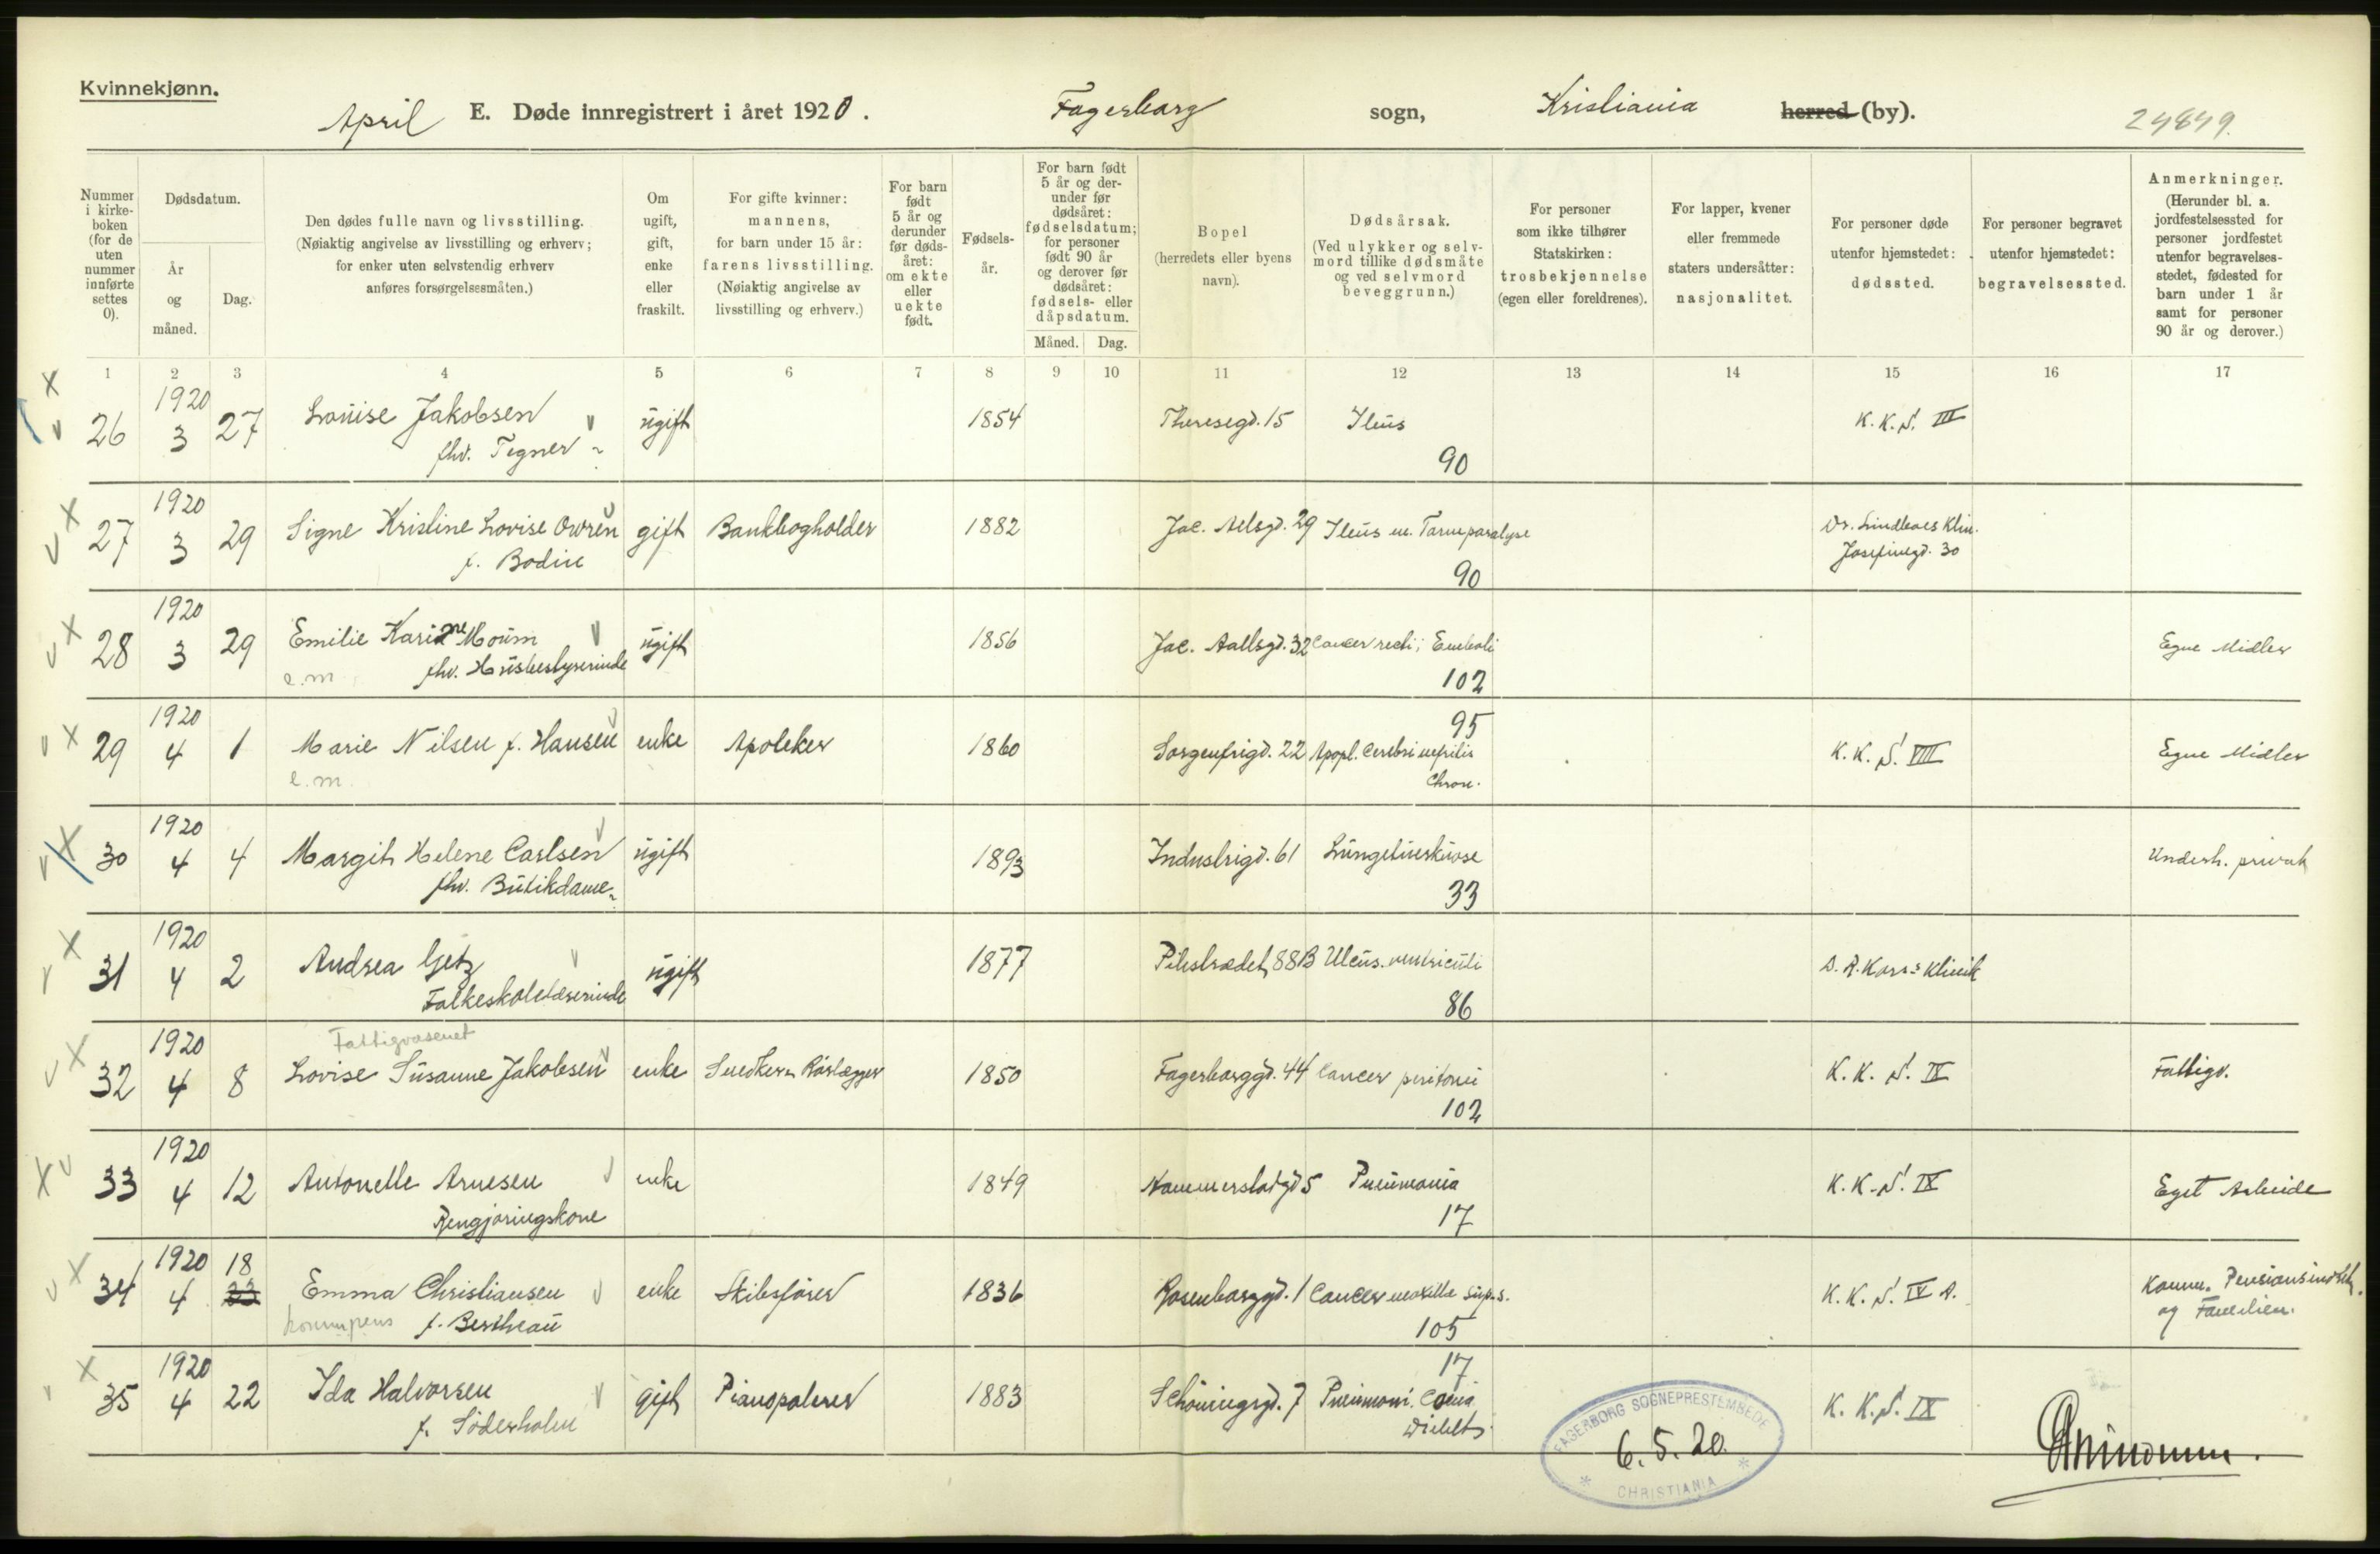 Kvinnekjønn.
April E. Døde innregistrert i året 1920. Fagerborg sogn, Kristiania herred (by). 24849.
Nummer i kirkeboken (for de uten nummer innførte settes 0).
Dødsdatum.
År og måned.
Dag.
Den dødes fulle navn og livsstilling. (Nøiaktig angivelse av livsstilling og erhverv; for enker uten selvstendig erhverv anføres forsørgelsesmåten.)
Om ugift, gift, enke eller fraskilt.
For gifte kvinner: mannens, for barn under 15 år: farens livsstilling. (Nøiaktig angivelse av livsstilling og erhverv.)
For barn født 5 år og derunder før dødsåret: om ekte eller uekte født.
Fødselsår.
For barn født 5 år og derunder før dødsåret: fødselsdatum; for personer født 90 år og derover før dødsåret: fødsels- eller dåpsdatum.
Måned. Dag.
Bopel (herredets eller byens navn).
Dødsårsak. (Ved ulykker og selvmord tillike dødsmåte og ved selvmord beveggrunn.)
For personer som ikke tilhører Statskirken: trosbekjennelse (egen eller foreldrenes).
For lapper, kvener eller fremmede staters undersåtter: nasjonalitet.
For personer døde utenfor hjemstedet: dødssted.
For personer begravet utenfor hjemstedet: begravelsessted.
Anmerkninger. (Herunder bl. a. jordfestelsessted for personer jordfestet utenfor begravelsesstedet, fødested for barn under 1 år samt for personer 90 år og derover.)
1 2 3 4 5 6 7 8 9 10 11 12 13 14 15 16 17
26 1920 3 27 Louise Jakobsen fhv. Tegner ugift 1854 Theresegd. 15 Ileus 90 K. K. S. III
27 1920 3 29 Signe Kristine Lovise Owren f. Bodin gift Bankbogholder 1882 Jac. Aalsgd. 29 Ileus m. Tarmparalyse 90 Dr. Lindboes Klin. Josefinegd. 30
28 1920 3 29 Emilie Karine Moum fhv. Husbestyrerinde e.m. ugift 1856 Jac. Aallsgd. 32 Cancer recti; Emboli 102 Egne Midler
29 1920 4 1 Marie Nilsen f. Hansen e.m. enke Apoteker 1860 Sorgenfrigd. 22 95 Apopl. Cerebri nefritis Chron. K. K. S. VIII Egne Midler
30 1920 4 4 Margit Helene Carlsen fhv. Butikdame ugift 1893 Industrigd. 61 Lungetuerkuose 33 Underh. privat
31 1920 4 2 Andrea Getz Folkeskolelærerinde ugift 1877 Pilestrædet 88B Ulcus ventriculi 86 Klinik
32 1920 4 8 Fattigvæsenet Lovise Susanne Jakobsen enke Snedker Rørlægger 1850 Fagerborggd. 44 Cancer peritonei 102 K. K. S. IX Fattigv.
33 1920 4 12 Antonette Arnesen Rengjøringskone enke 1849 Hammerstadgd 5 Pneumonia 17 K. K. S. IX Eget Arbeide
34 1920 4 18 33 Emma Christiansen f. Bertheau kommpens enke Skibsfører 1836 Rosenborggd. 1 Cancer maxilla sup. s. 105 K. K. S. IV A. Komm. Pensionsindt. og Familien.
35 1920 4 22 Ida Halvorsen f. Söderholm gift Pianopolerer 1883 Schöningsgd. 7 17 Pneumoni. Coma Diabet. K. K. S. IX
FAGERBORG SOGNEPRESTEMBEDE
6. 5. 20.
CHRISTIANIA